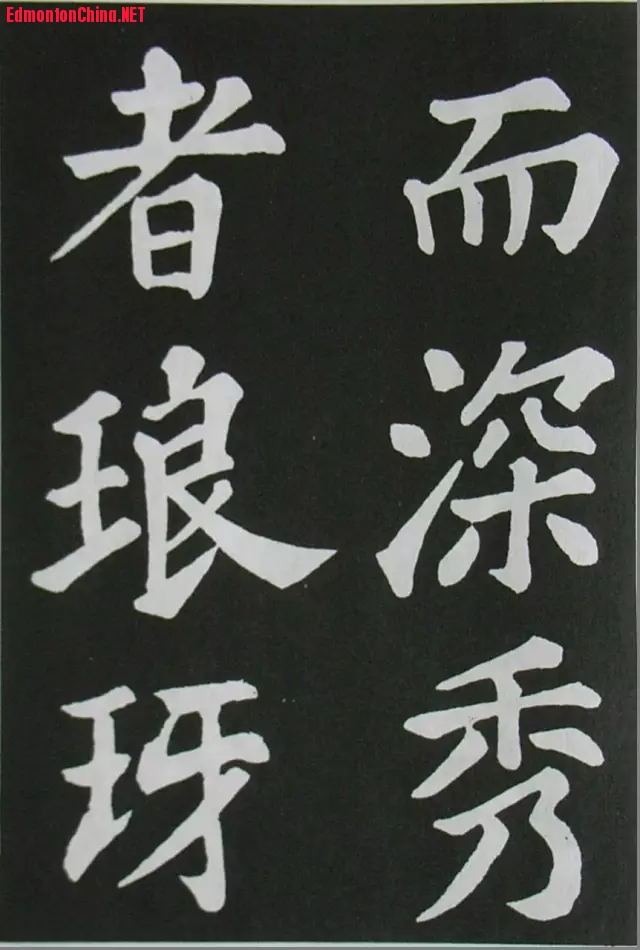 EdmontonChina.NET
而深秀
者琅玡